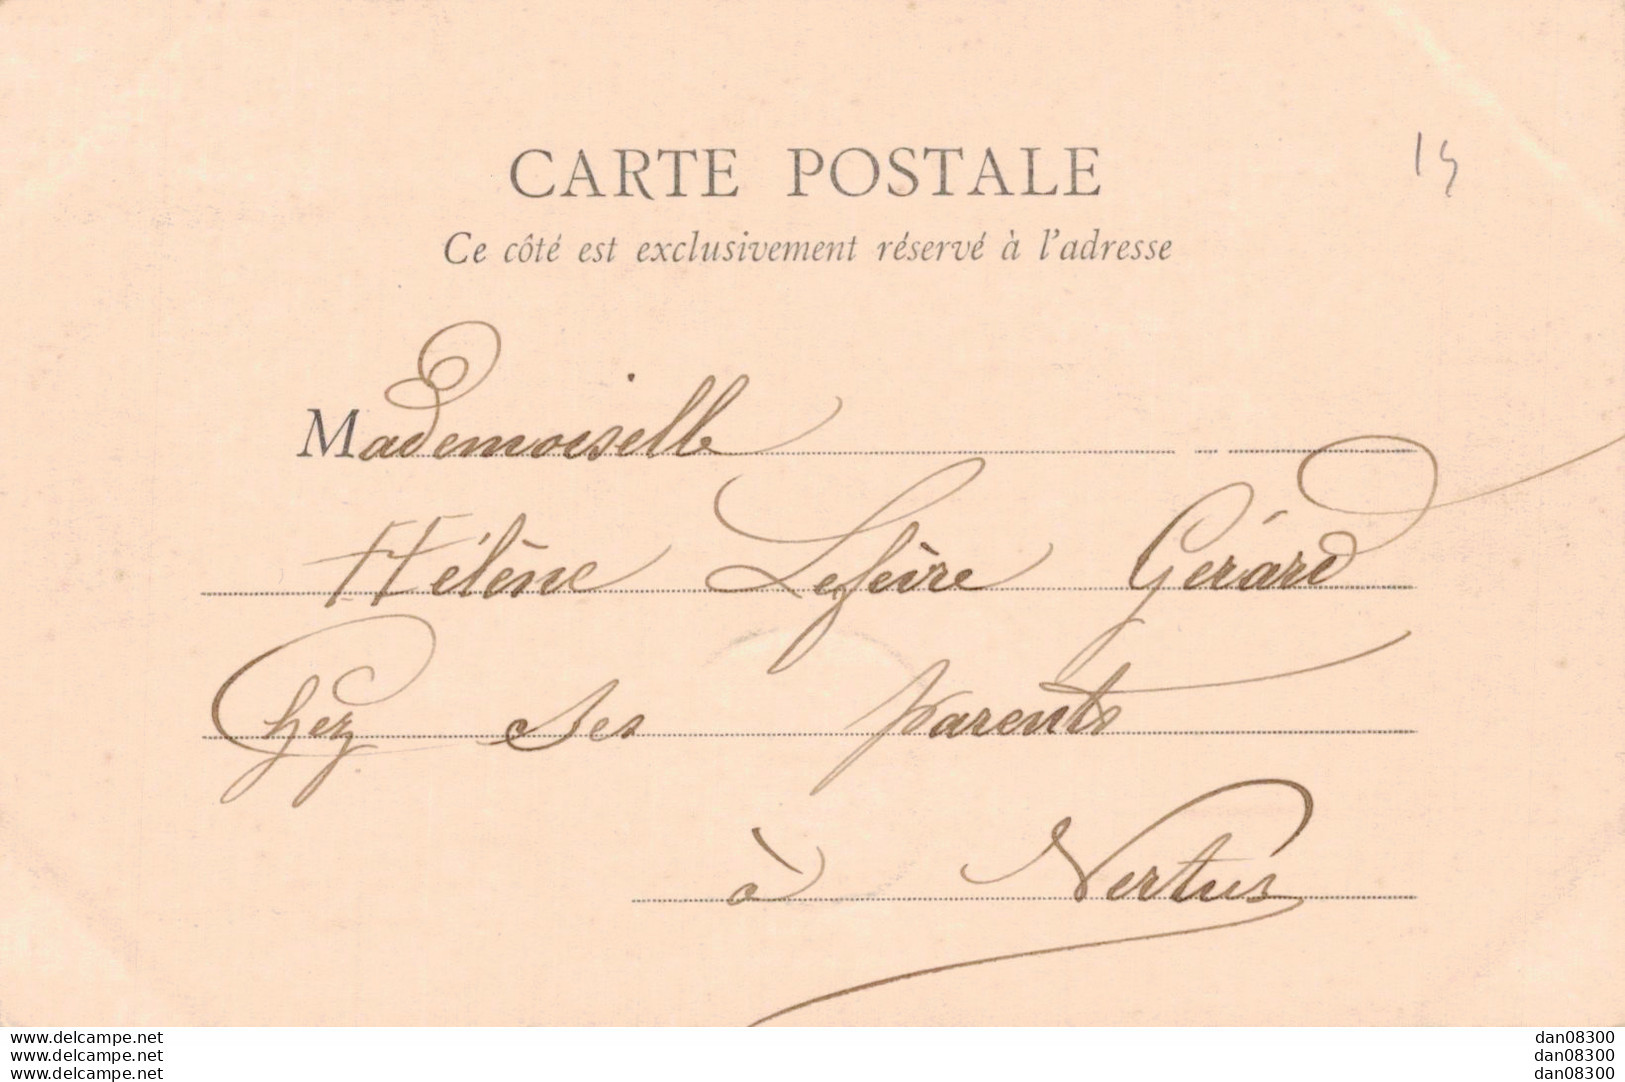 CARTE POSTALE
15
Ce côté est exclusivement réservé à l'adresse
Mademoiselle
Hélène Lefèvre Gérard
Chez ses parents
à Vertus
delcampe.net
delcampe.net
delcampe.net
dan08300
dan08300
dan08300